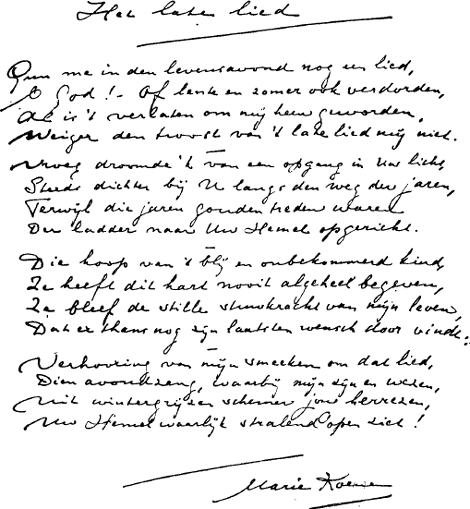 Het late lied
Gun me in den levensavond nog een lied,
O God! - Of lente en zomer ook verdorden,
Al is 't verlaten om mij heen geworden,
Weiger den troost van 't late lied mij niet.
Vroeg droomde 'k van een opgang in Uw licht,
Steeds dichter bij U langs den weg der jaren,
Terwijl die jaren gouden treden waren
Der ladder naar Uw Hemel opgericht.
Die hoop van 't blij en onbekommerd kind,
Ze heeft dit hart nooit algeheel begeven,
Ze bleef de stille stuwkracht van mijn leven,
Dat er thans nog zijn laatsten wensch door vindt:
Verhooring van mijn smeeken om dat lied,
Dien avondzang, waarbij mijn zijn en wezen,
Uit wintergrijzen schemer jong herrezen,
Uw Hemel waarlijk stralend open ziet!
Marie Koenen